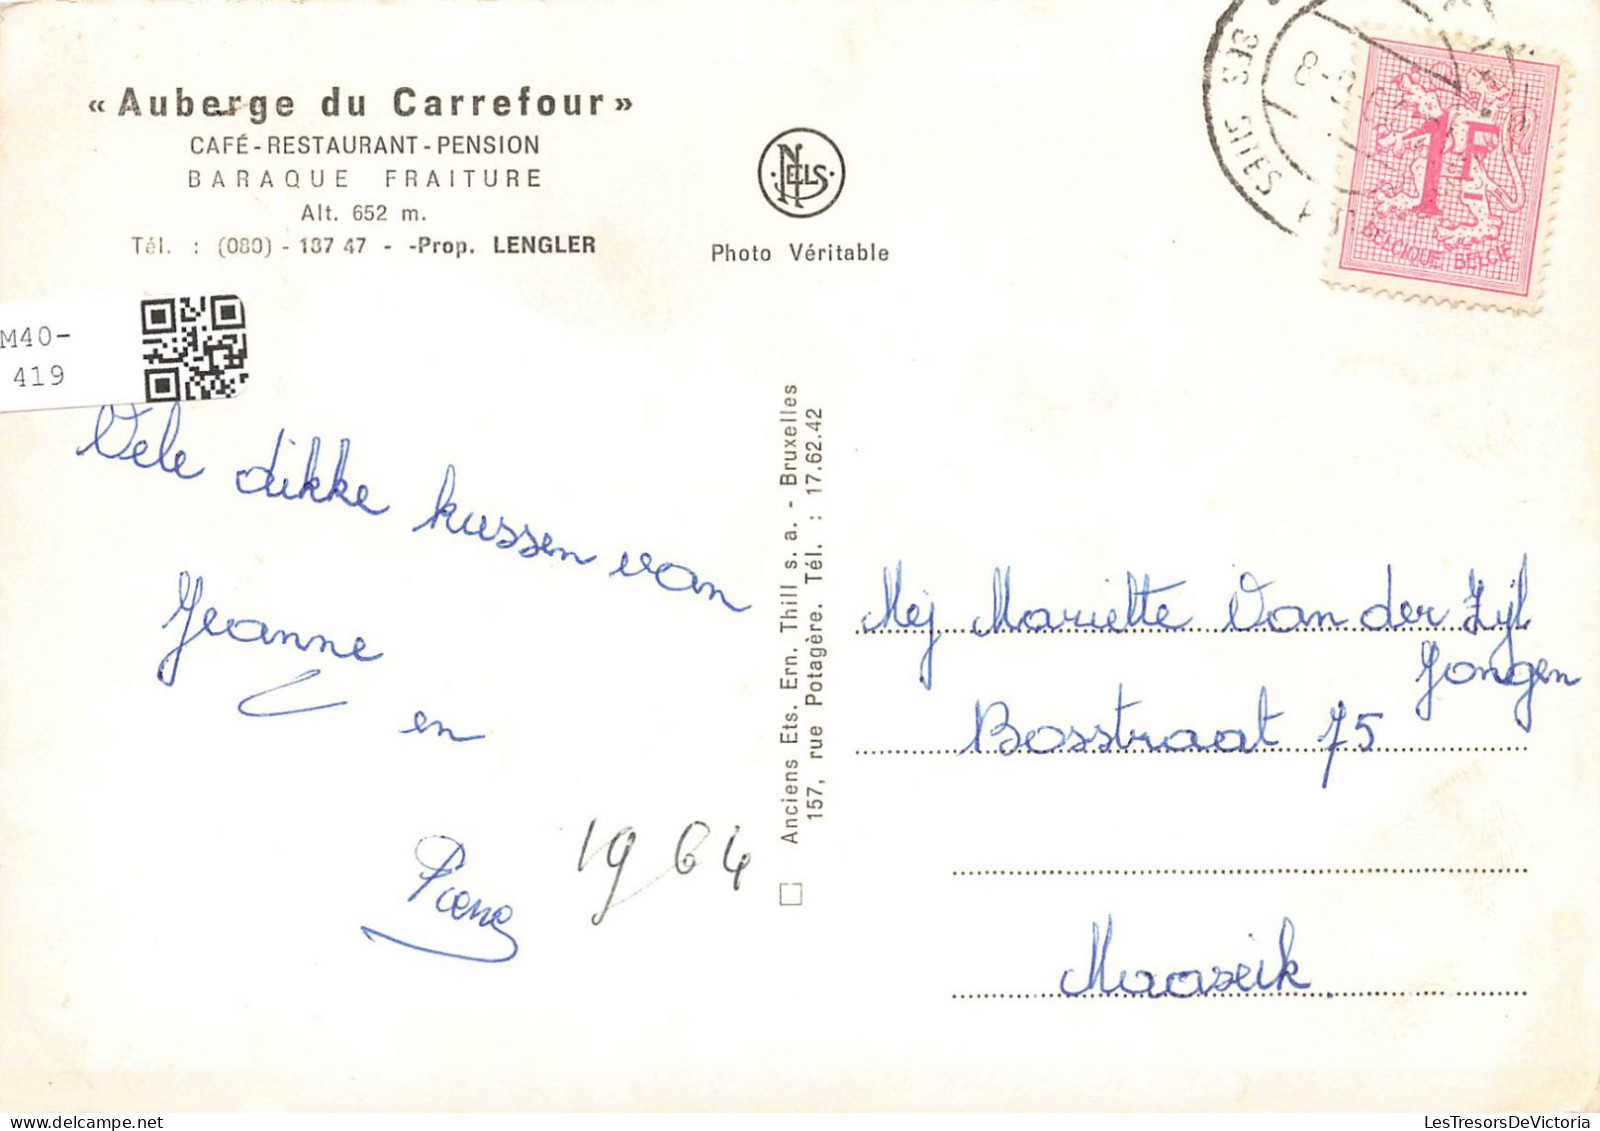 « Auberge du Carrefour »
CAFÉ - RESTAURANT - PENSION
BARAQUE FRAITURE
Alt. 652 m.
Tél. : (080) - 187 47 - -Prop. LENGLER
NELS
Photo Véritable
SES SITES
1F
BELGIQUE BELGIE
M40-
419
Vele dikke kussen van
Jeanne
en
1964
Anciens Ets. Ern. Thill s. a. - Bruxelles
157, rue Potagère. Tél. : 17.62.42
Mej Mariette Van der Zijl
Jongen
Bosstraat 75
Maaseik.
LesTresorsDeVictoria.com